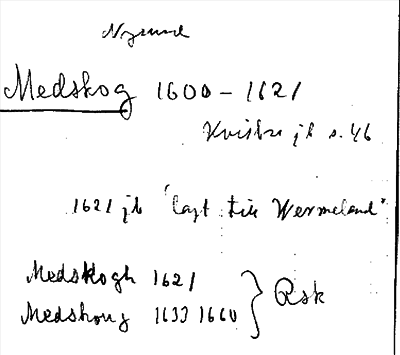 Nysund
Medskog 1600 - 1621
Kvistbro jb s. 46
1621 jb "lagt till Wermeland"
Medskogh 1621
Medskoug 1633 1660 } Rsk